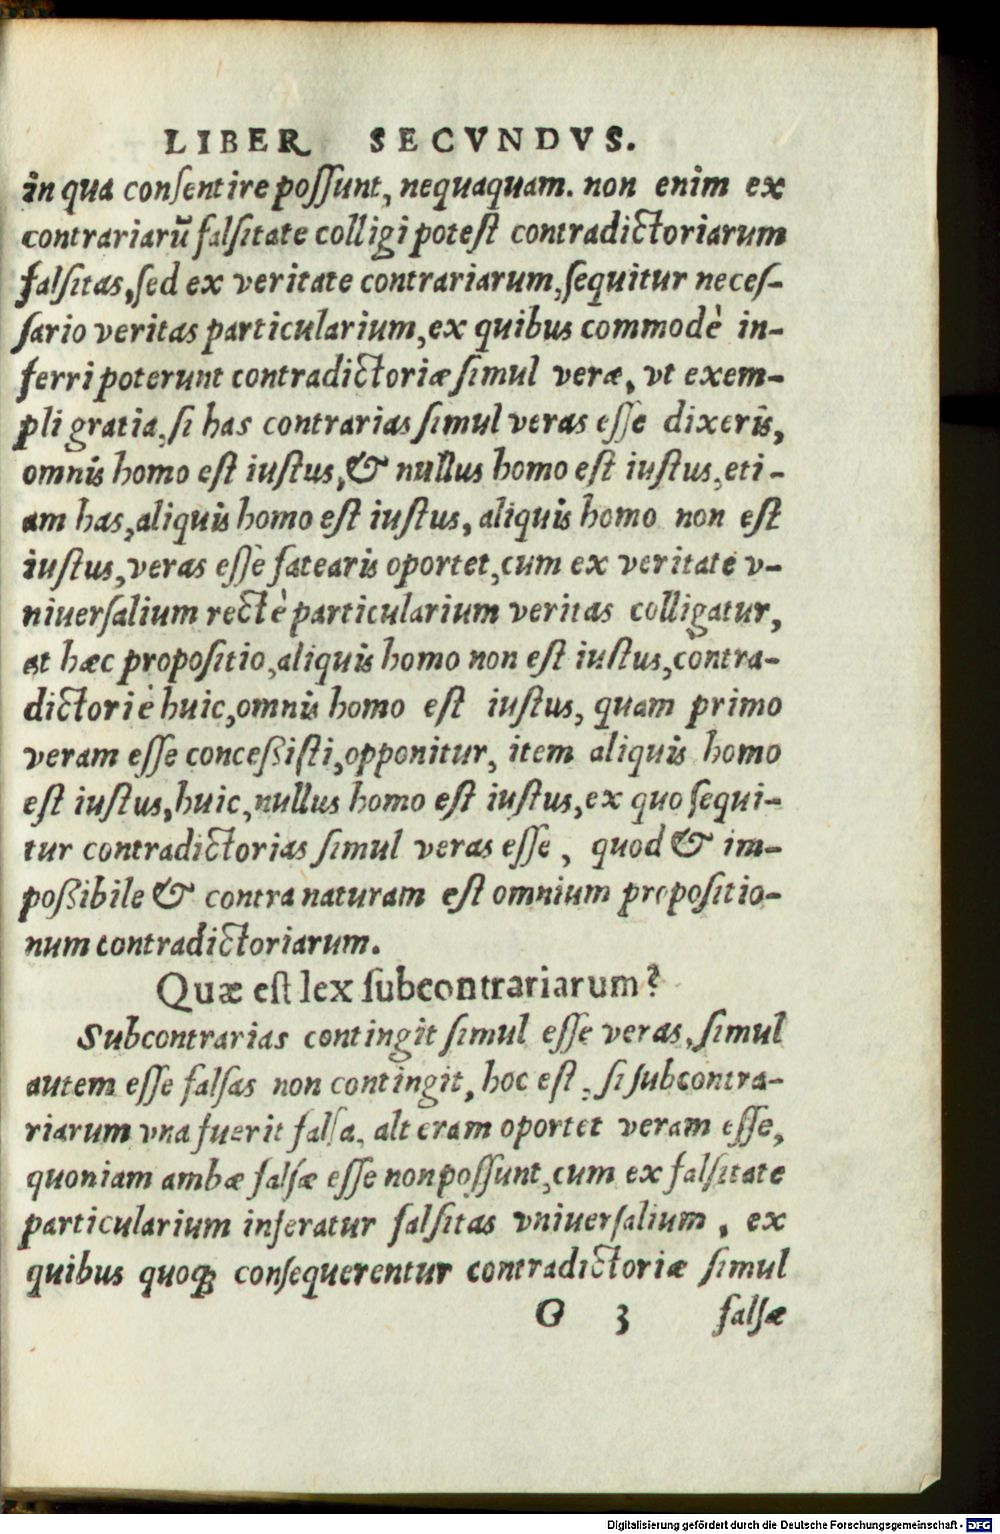 LIBER SECVNDVS.
in qua conſentire poſſunt, nequaquam. non enim ex
contrariarũ falſitate colligi poteſt contradictoriarum
falſitas, ſed ex veritate contrariarum, ſequitur neceſ-
ſario veritas particularium, ex quibus commodè in-
ferri poterunt contradictoriæ ſimul veræ, vt exem-
pli gratia, ſi has contrarias ſimul veras eſſe dixeris,
omnis homo eſt iuſtus, & nullus homo eſt iuſtus, eti-
am has, aliquis homo eſt iuſtus, aliquis homo non eſt
iuſtus, veras eſſe fatearis oportet, cum ex veritate v-
niuerſalium rectè particularium veritas colligatur,
at hæc propoſitio, aliquis homo non eſt iuſtus, contra-
dictoriè huic, omnis homo eſt iuſtus, quam primo
veram eſſe conceßiſti, opponitur, item aliquis homo
eſt iuſtus, huic, nullus homo eſt iuſtus, ex quo ſequi-
tur contradictorias ſimul veras eſſe, quod & im-
poßibile & contra naturam eſt omnium propoſitio-
num contradictoriarum.
Quæ eſt lex ſubcontrariarum?
Subcontrarias contingit ſimul eſſe veras, ſimul
autem eſſe falſas non contingit, hoc eſt, ſi ſubcontra-
riarum vna fuerit falſa, alteram oportet veram eſſe,
quoniam ambæ falſæ eſſe non poſſunt, cum ex falſitate
particularium inferatur falſitas vniuerſalium, ex
quibus quoq; conſequerentur contradictoriæ ſimul
G 3 falſæ
Digitalisierung gefördert durch die Deutsche Forschungsgemeinschaft - DFG